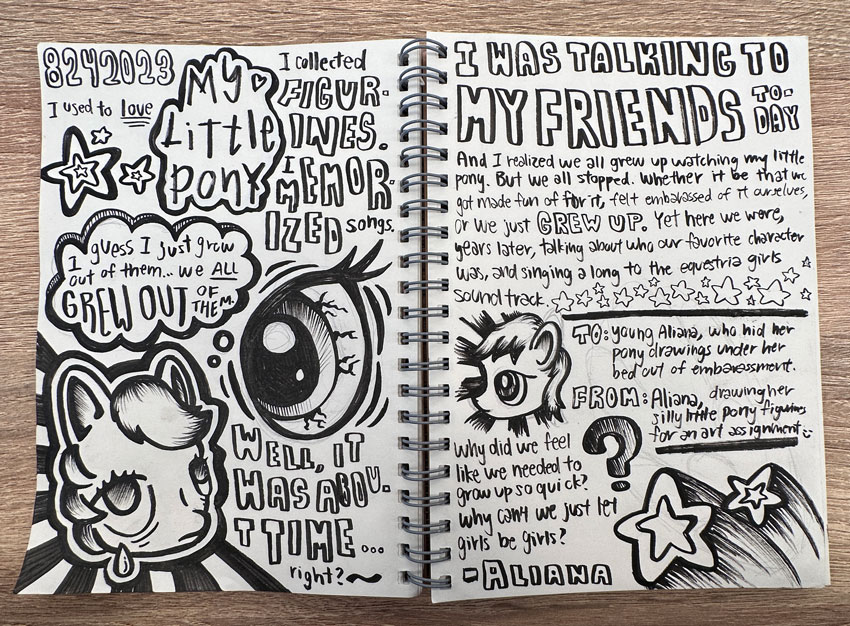 8242023
I used to love
My
Little
Pony
I collected
FIGUR-
INES.
I
MEMOR-
IZED songs.
I guess I just grew
out of them... we ALL
GREW OUT OF
THEM.
WELL, IT
WAS ABOU-
T TIME...
right?
I WAS TALKING TO
MY FRIENDS TO-
DAY
And I realized we all grew up watching my little
pony. But we all stopped. Whether it be that we
got made fun of for it, felt embarassed of it ourselves,
or we just GREW UP. Yet here we were,
years later, talking about who our favorite character
was, and singing a long to the equestria girls
sound track.
TO: young Aliana, who hid her
pony drawings under her
bed out of embarassment.
FROM: Aliana, drawing her
silly little pony figurines
for an art assignment :)
Why did we feel
like we needed to
grow up so quick?
why can't we just let
girls be girls?
?
-ALIANA